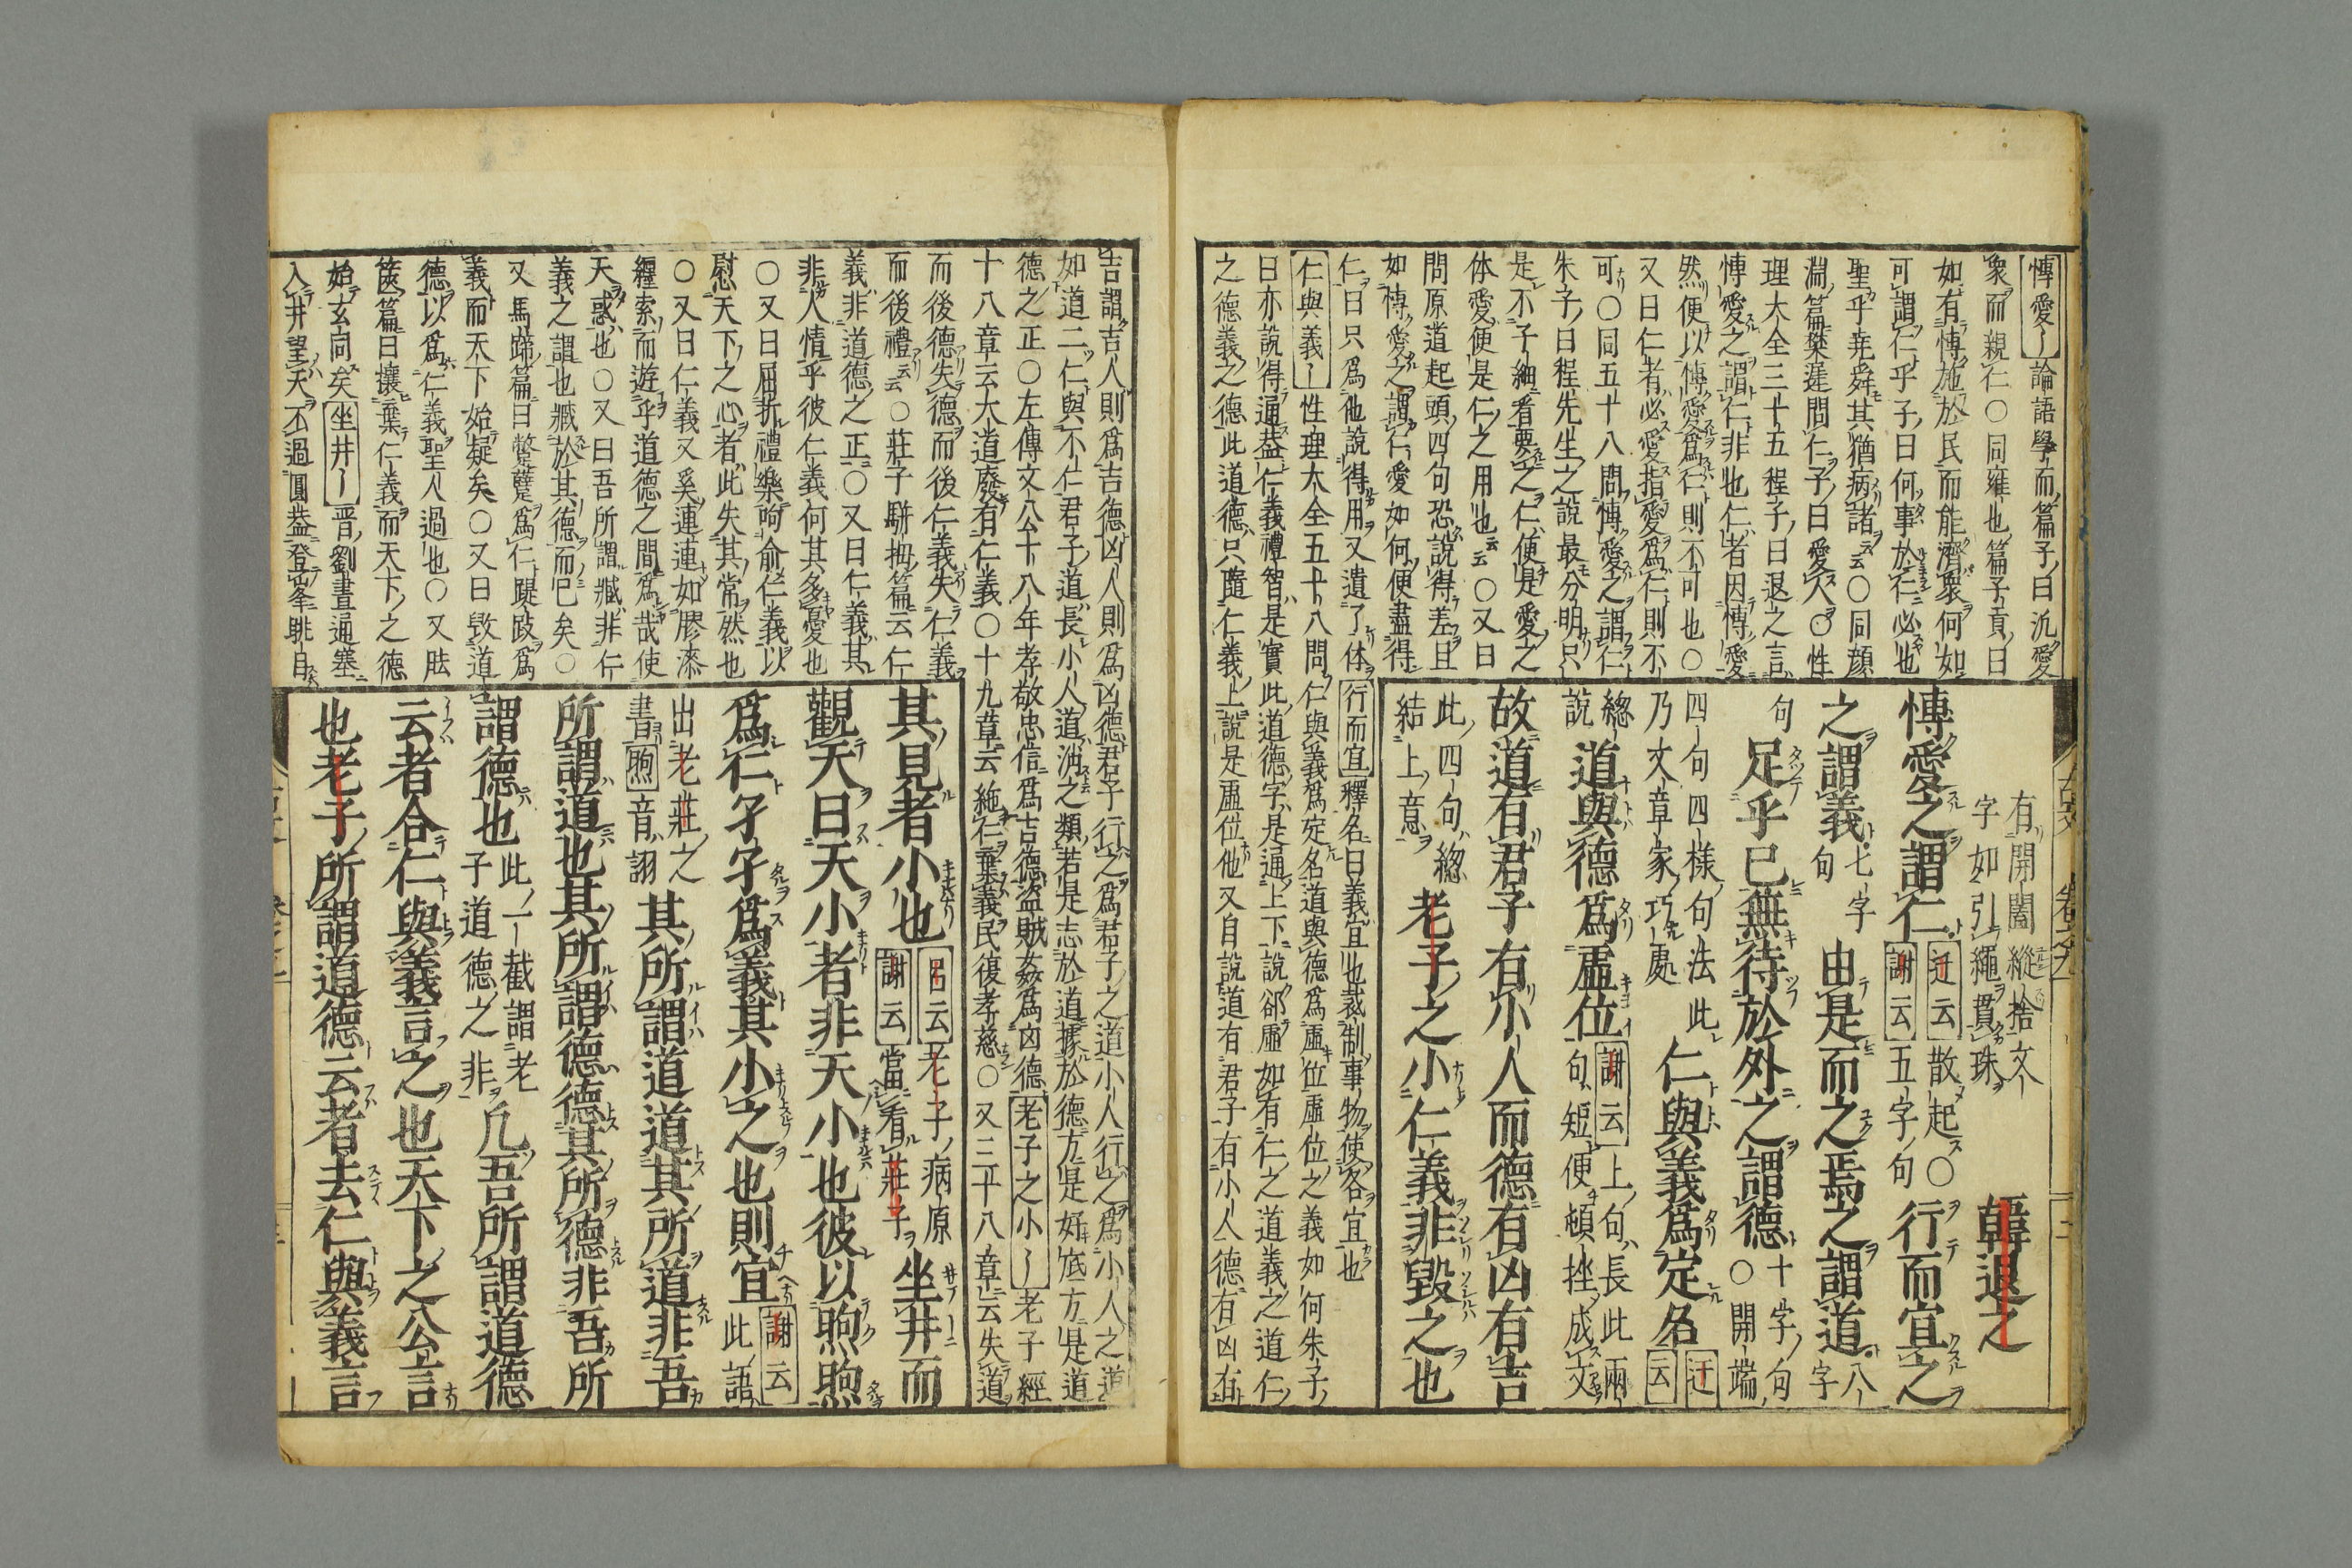 博愛〡論語學而篇子曰汎愛
衆而親仁〇同雍也篇子貢曰
如有博施於民而能濟衆何如
可謂仁乎子曰何事於仁必也
聖乎堯舜其猶病諸云云〇同顔
淵篇樊遲問仁子曰愛人〇性
理大全三十五程子曰退之言
博愛之謂仁非也仁者因博愛
然便以博愛爲仁則不可也〇
又曰仁者必愛指愛爲仁則不
可〇同五十八問博愛之謂仁
朱子曰程先生之說最分明只
是不子細看要之仁便是愛之
体愛便是仁之用也云云〇又曰
問原道起頭四句恐說得差且
如博愛之謂仁愛如何便盡得
仁曰只爲他說得用又遺了体行而宜釋名曰義宜也裁制事物使各宜也
仁與義〡性理大全五十八問仁與義爲定名道與德爲虛位虛位之義如何朱子
曰亦說得通蓋仁義禮智是實此道德字是通上下說卻虛如有仁之道義之道仁
之德義之德此道德只隨仁義上說是虛位他又自說道有君子有小人德有凶有
有開闔縱捨文
字如引繩貫珠
韓退之
博愛之謂仁
迂云散起〇
謝云五字句
行而宜之
之謂義
七字
句
由是而之焉之謂道
八
字
句
足乎已無待於外之謂德
十字句
〇開端
四句四樣句法此
乃文章家巧處
仁與義爲定名
迂
云
總
說
道與德爲虛位
謝云上句長此兩
句短便頓挫成文
故道有君子有小人而德有凶有吉
此四句總
結上意
老子之小仁義非毀之也
吉謂吉人則爲吉德凶人則爲凶德君子行之爲君子之道小人行之爲小人之道
如道二仁與不仁君子道長小人道消之類若是志於道據於德方是好底方是道
德之正〇左傳文公十八年孝敬忠信爲吉德盜賊姦爲凶德老子之小〡老子經
十八章云大道廢有仁義〇十九章云絶仁棄義民復孝慈〇又三十八章云失道
而後德失德而後仁義失仁義
而後禮云云〇莊子駢拇篇云仁
義非道德之正〇又曰仁義其
非人情乎彼仁義何其多憂也
〇又曰屈折禮樂呴俞仁義以
慰天下之心者此失其常然也
〇又曰仁義又奚連連如膠漆
纆索而遊乎道德之間爲哉使
天惑也〇又曰吾所謂臧非仁
義之謂也臧於其德而已矣〇
又馬蹄篇曰蹩躠爲仁踶跂爲
義而天下始疑矣〇又曰毀道
德以爲仁義聖人過也〇又胠
篋篇曰攘棄仁義而天下之德
始玄同矣坐井〡晋劉晝通塞
入井望天不過圓蓋登峯眺目
其見者小也
呂云老子病原
謝云當看莊子
坐井而
觀天曰天小者非天小也彼以煦煦
爲仁孑孑爲義其小之也則宜
謝云
此語
出老莊之
書煦音詡
其所謂道道其所道非吾
所謂道也其所謂德德其所德非吾所
謂德也
此一截謂老
子道德之非
凡吾所謂道德
云者合仁與義言之也天下之公言
也老子所謂道德云者去仁與義言